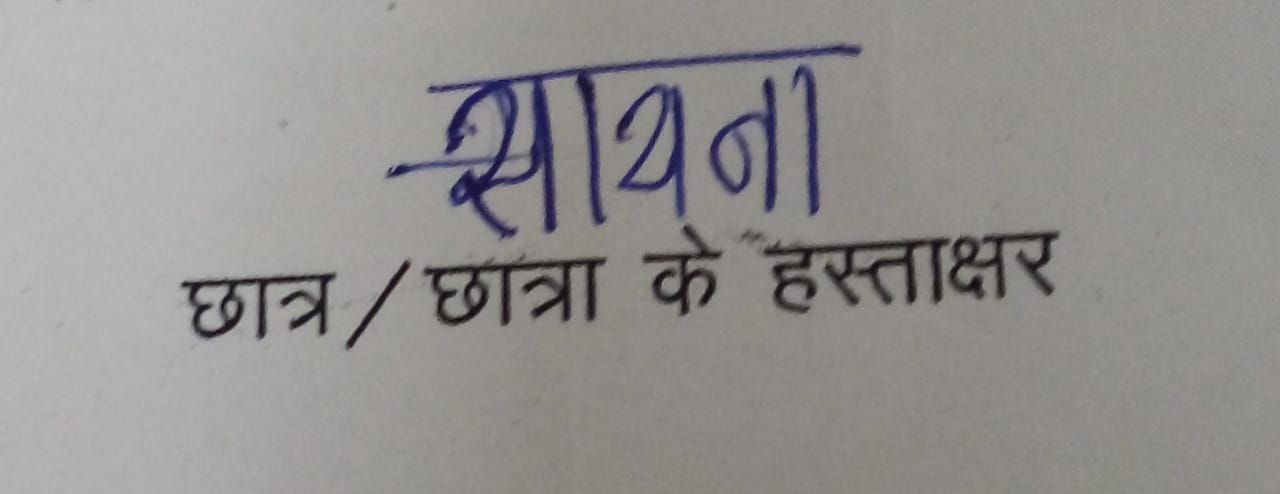 सायना
छात्र / छात्रा के हस्ताक्षर